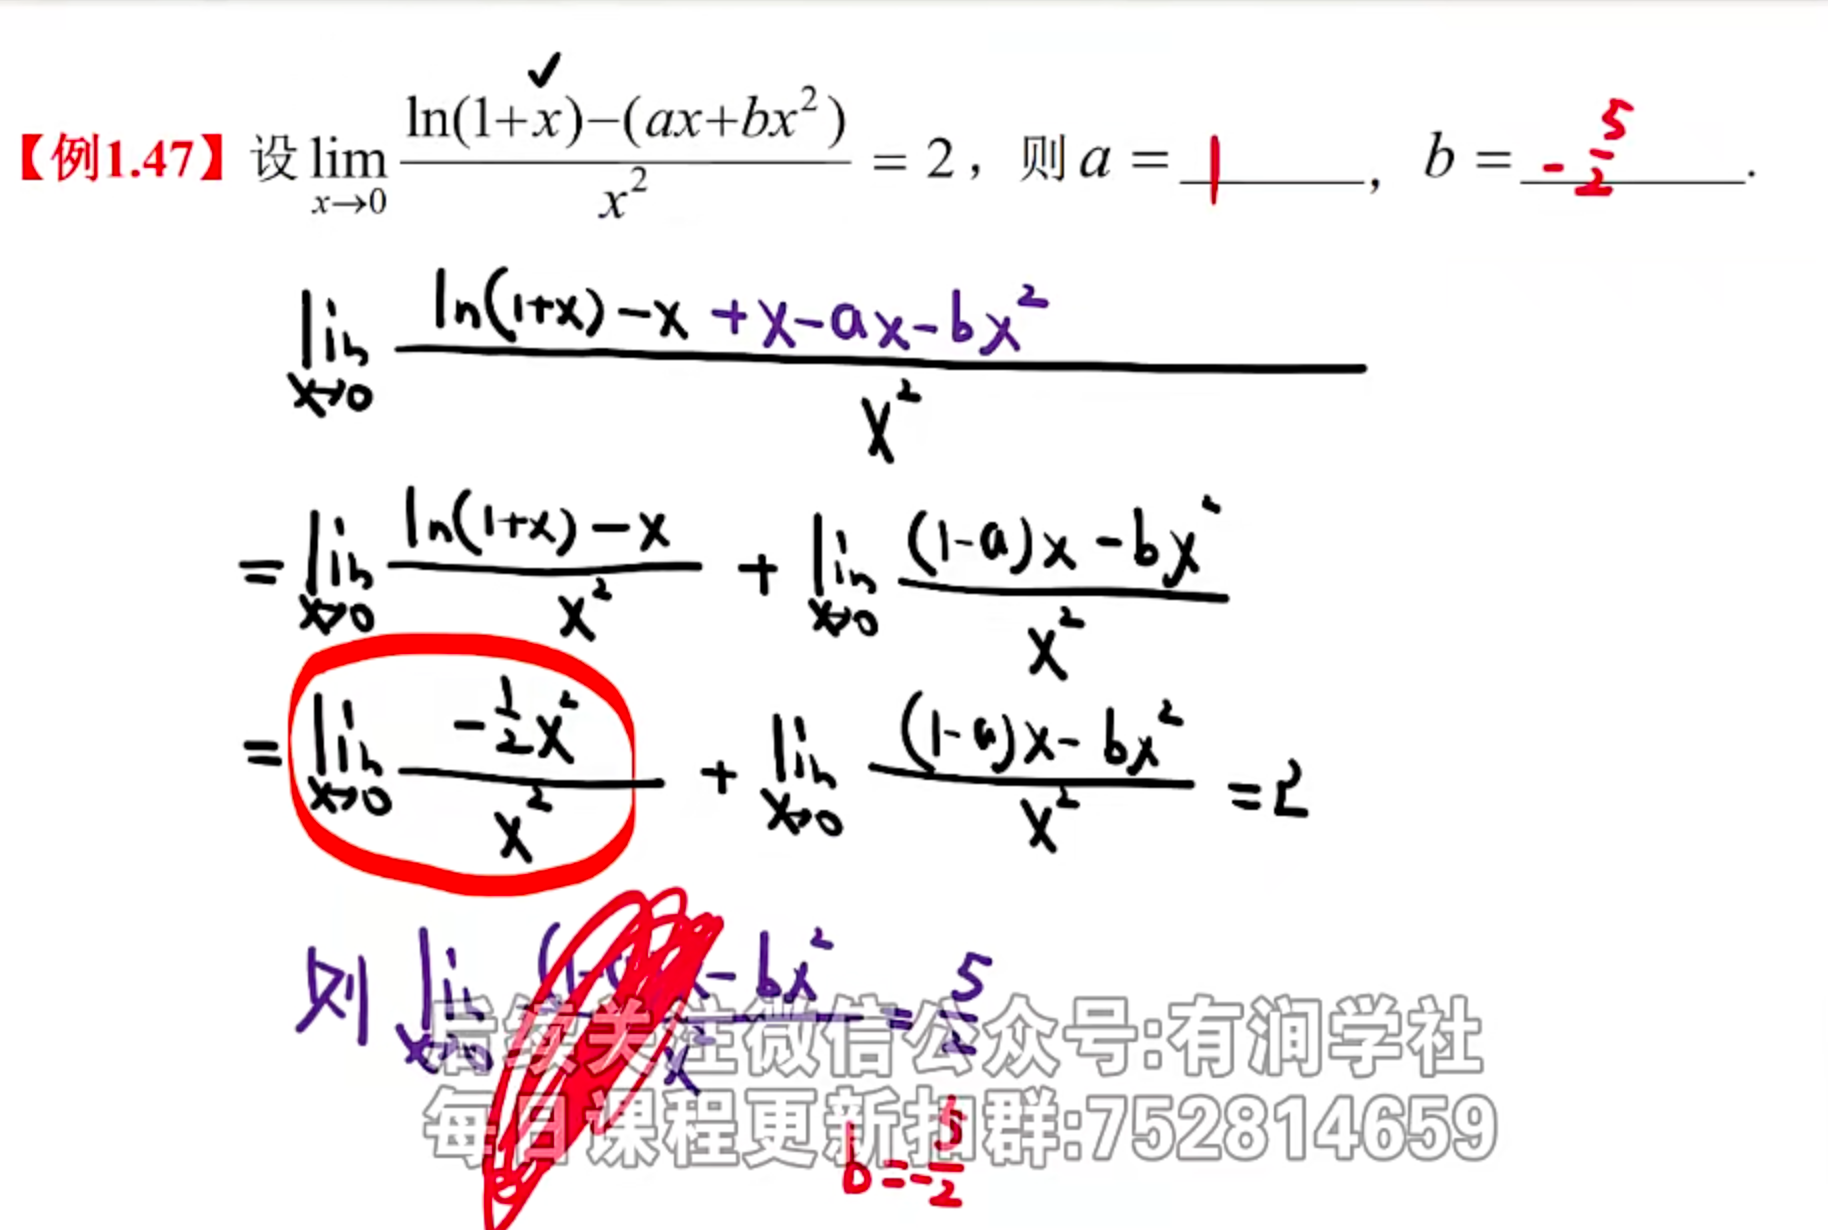 ✓
【例1.47】设 lim_{x→0} \frac{ln(1+x)−(ax+bx²)}{x²} = 2，则 a = 1，b = −\frac{5}{2}.
lim_{x→0} \frac{ln(1+x)−x+x−ax−bx²}{x²}
= lim_{x→0} \frac{ln(1+x)−x}{x²} + lim_{x→0} \frac{(1−a)x−bx²}{x²}
= lim_{x→0} \frac{−\frac{1}{2}x²}{x²} + lim_{x→0} \frac{(1−a)x−bx²}{x²} = 2
则 lim_{x→0} \frac{−bx²}{x²} = \frac{5}{2}
后续关注微信公众号:有润学社
每日课程更新扣群:752814659
b=−\frac{5}{2}